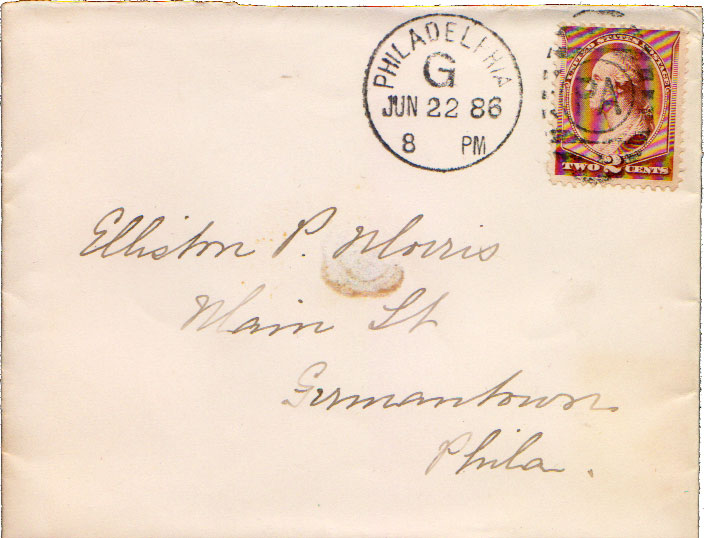 PHILADELPHIA
G
JUN 22 86
8 PM
UNITED STATES POSTAGE
PA
TWO 2 CENTS
Elliston P. Morris
Main St
Germantown
Phila.